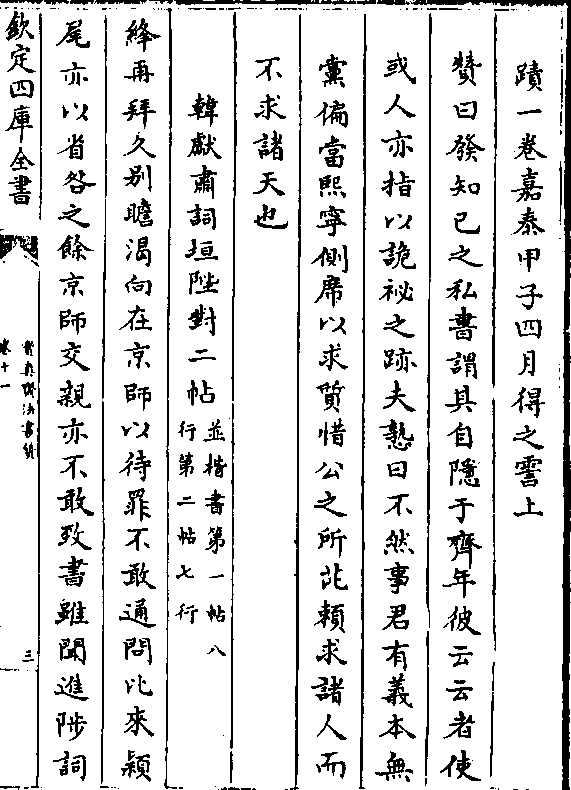 蹟一卷嘉泰甲子四月得之霅上
贊曰發知己之私書謂其自隱于齊年彼云云者使
或人亦指以詭祕之跡夫孰曰不然事君有義本無
黨偏當熙寧側席以求質惜公之所疵頼求諸人而
不求諸天也
韓獻肅詞垣陞對二帖並楷書第一帖八
行第二帖七行
絳再拜久别瞻渴向在京師以待罪不敢通問比來潁
尾亦以省咎之餘京師交親亦不敢致書雖聞進陟詞
欽定四庫全書
寳真齋法書贊
卷十一
三